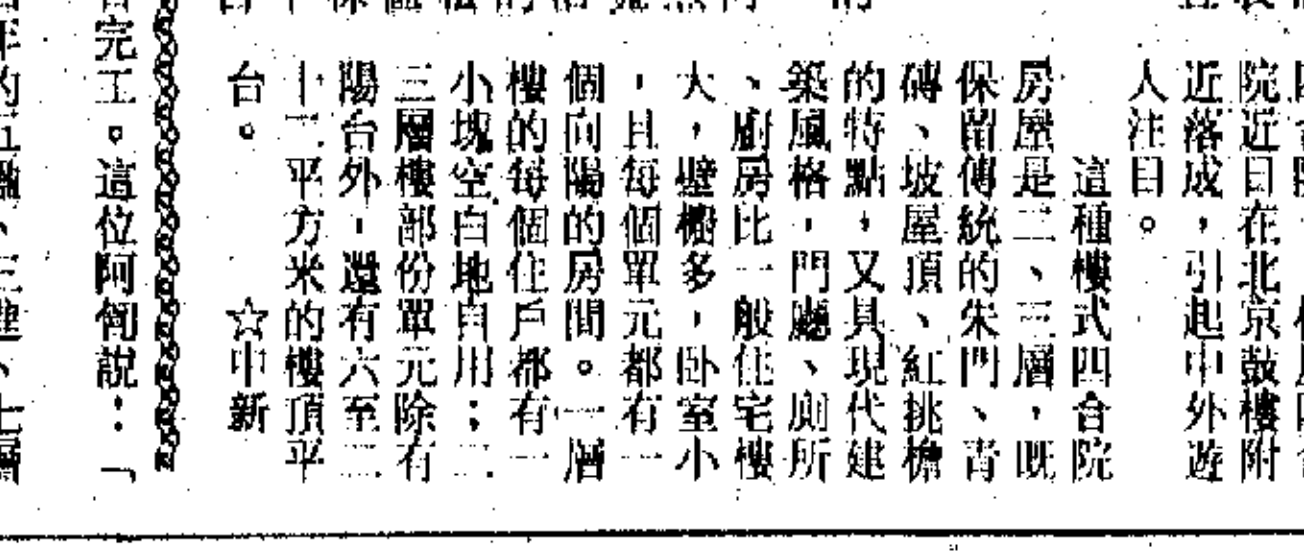 院近日在北京鼓樓附
近落成，引起中外遊
人注目。
這種樓式四合院
房屋是二、三層，既
保留傳統的朱門、青
磚、坡屋頂、紅挑檐
的特點，又具現代建
築風格，門廳、廁所
、廚房比一般住宅樓
大，壁櫥多，卧室小
，且每個單元都有一
個向陽的房間。一層
樓的每個住戶都有一
小塊空白地自用；二
三層樓部份單元除有
陽台外，還有六至二
十二平方米的樓頂平
台。
☆中新
完工。這位阿訇説：「